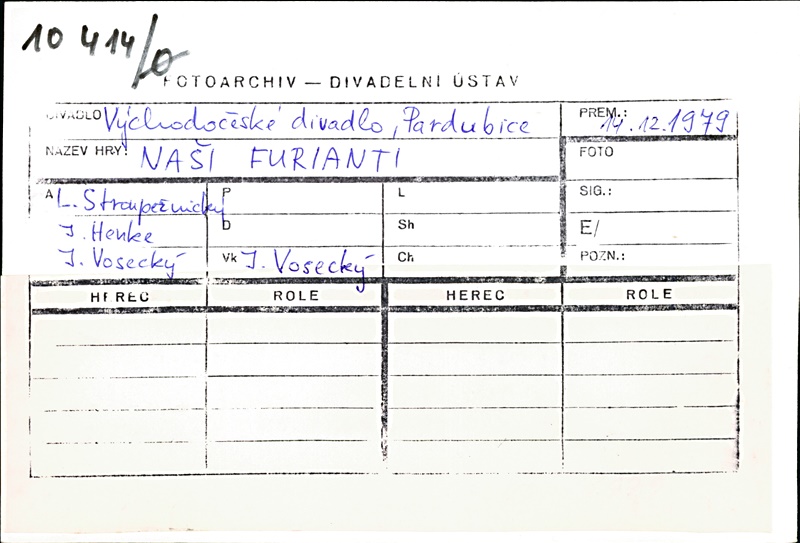 10 414/0
FOTOARCHIV — DIVADELNÍ ÚSTAV
DIVADLO Východočéské divadlo, Pardubice
PREM.: 14.12.1979
NÁZEV HRY: NAŠI FURIANTI
FOTO
A L. Stroupežnický P L SIG.:
J. Henke D Sh E/
J. Vosecký Vk J. Vosecký Ch POZN.:
HEREC ROLE HEREC ROLE